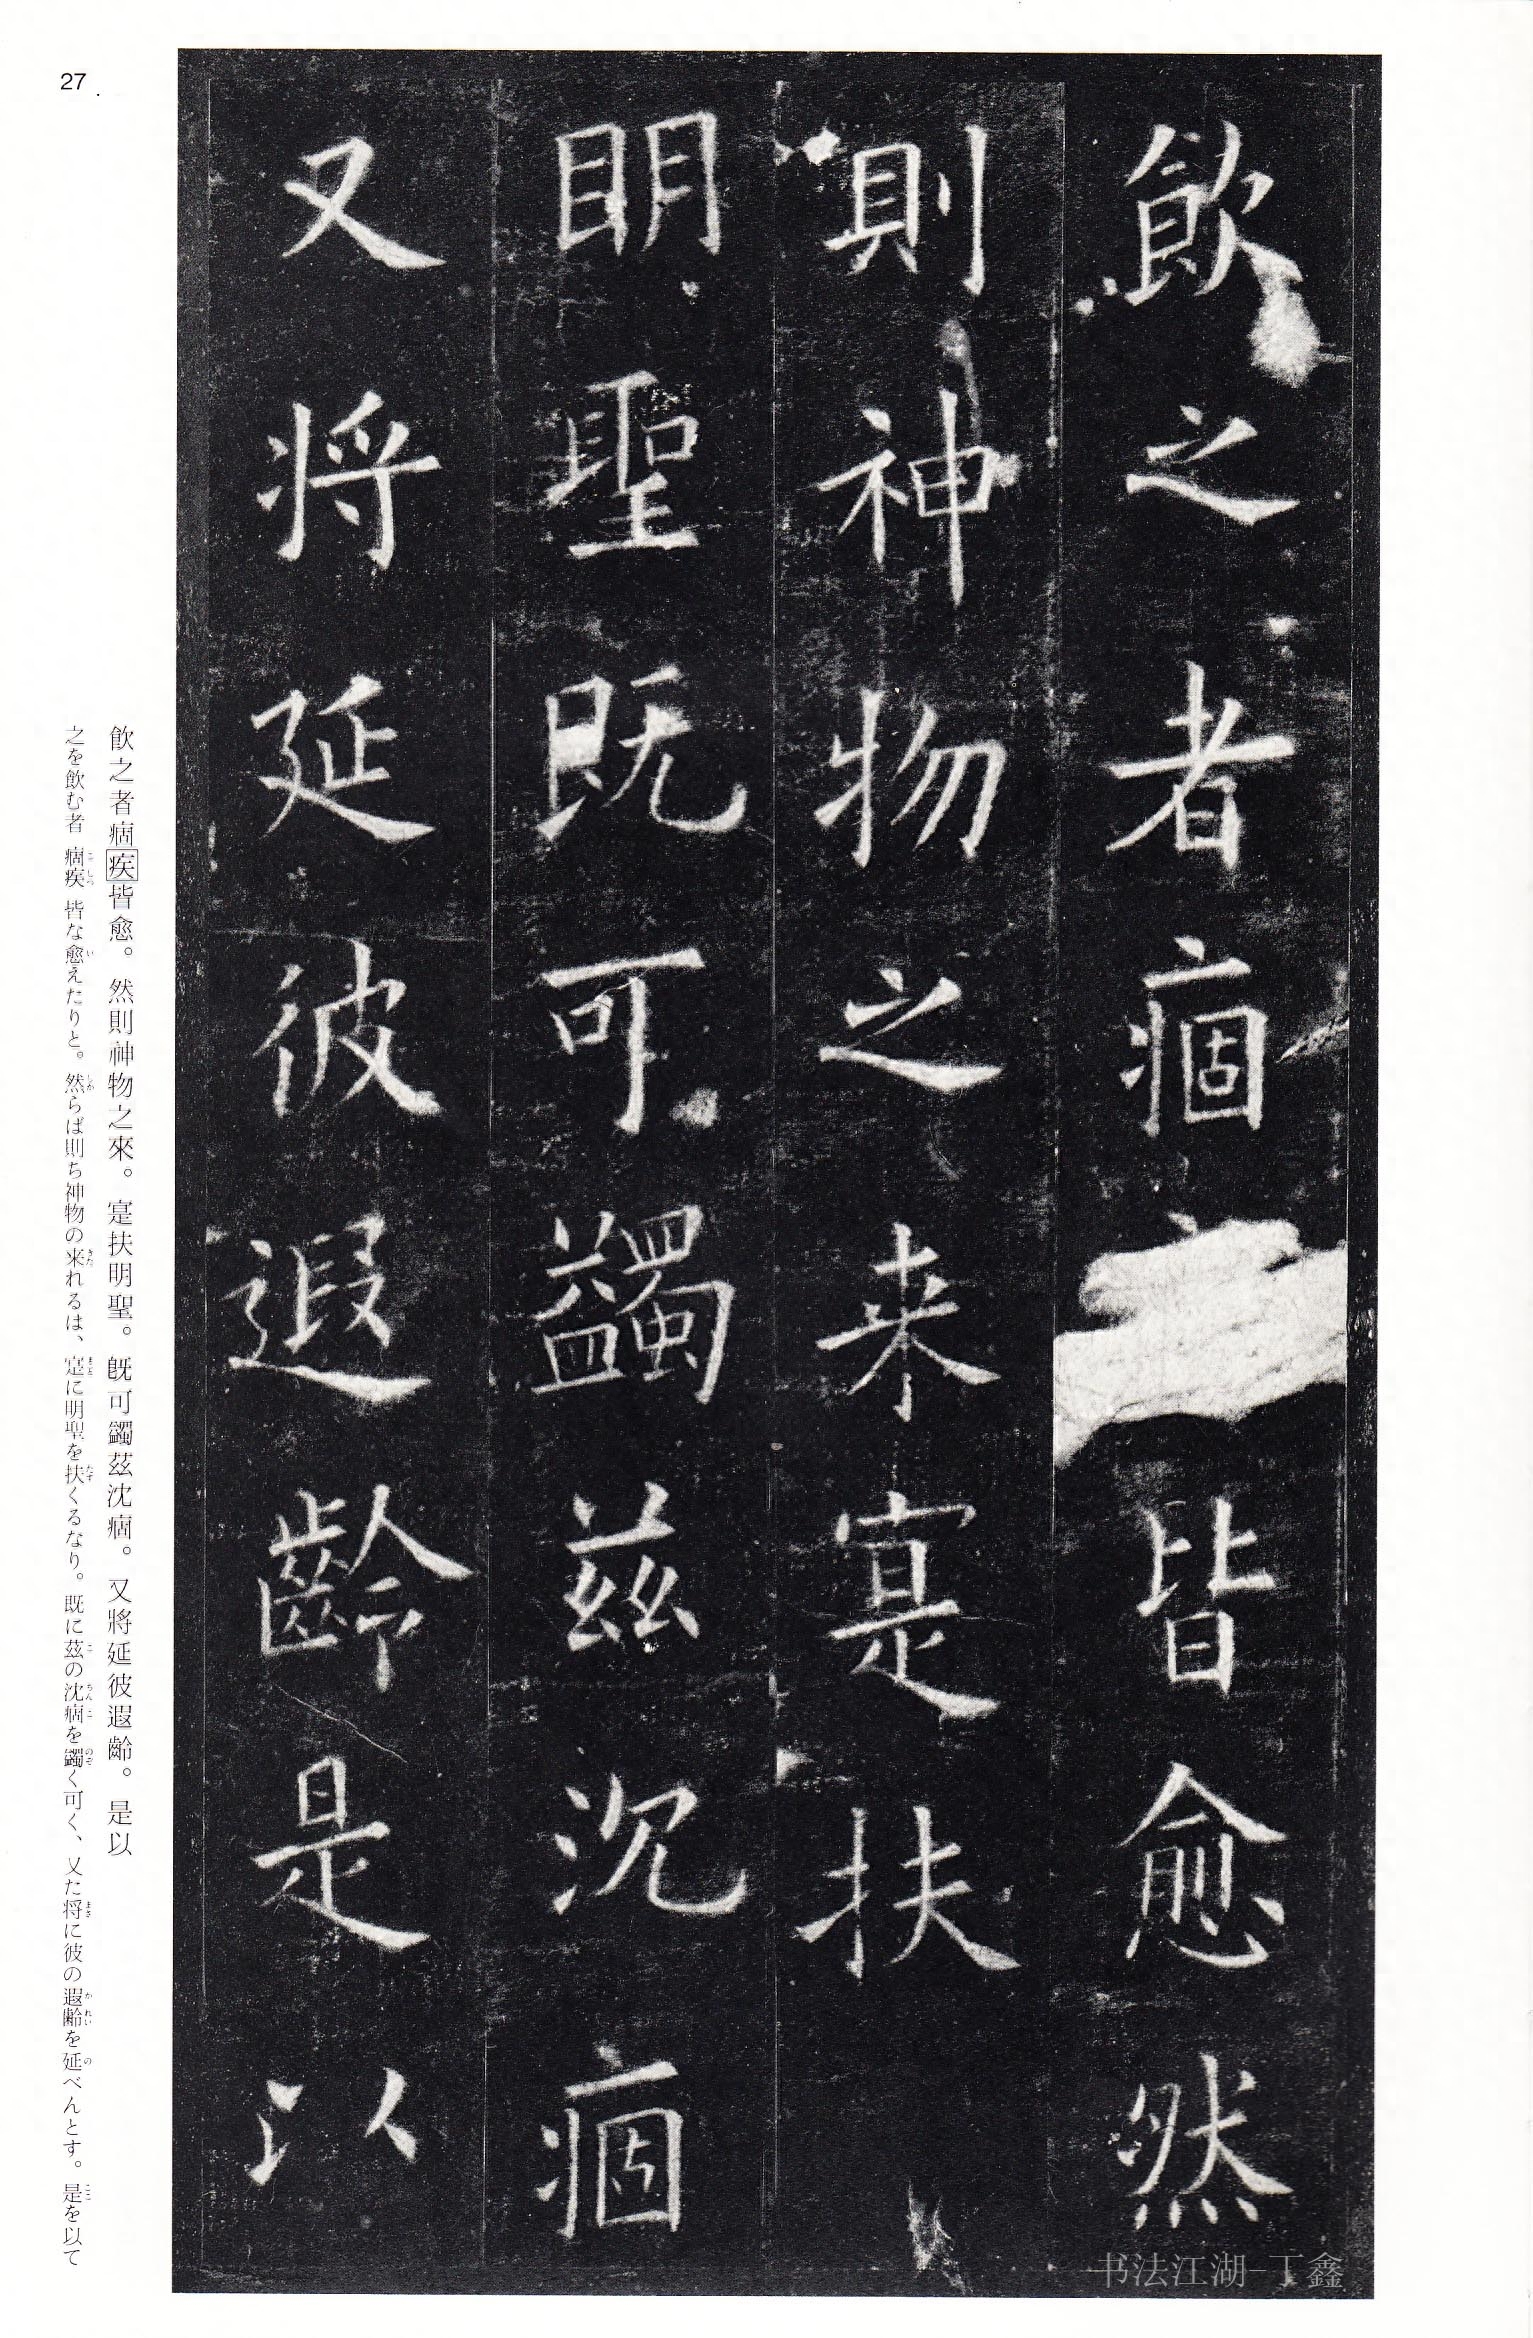 27
飲之者痼皆愈然
則神物之来寔扶
明聖既可蠲兹沉痼
又将延彼遐齡是以
飲之者痼疾皆愈。然則神物之來。寔扶明聖。既可蠲茲沈痼。又將延彼遐齡。是以
之を飲む者 痼疾 皆な愈えたりと。然らば則ち神物の来れるは、寔に明聖を扶くるなり。既に茲の沈痼を蠲く可く、又た将に彼の遐齢を延べんとす。是を以て
书法江湖-丁鑫